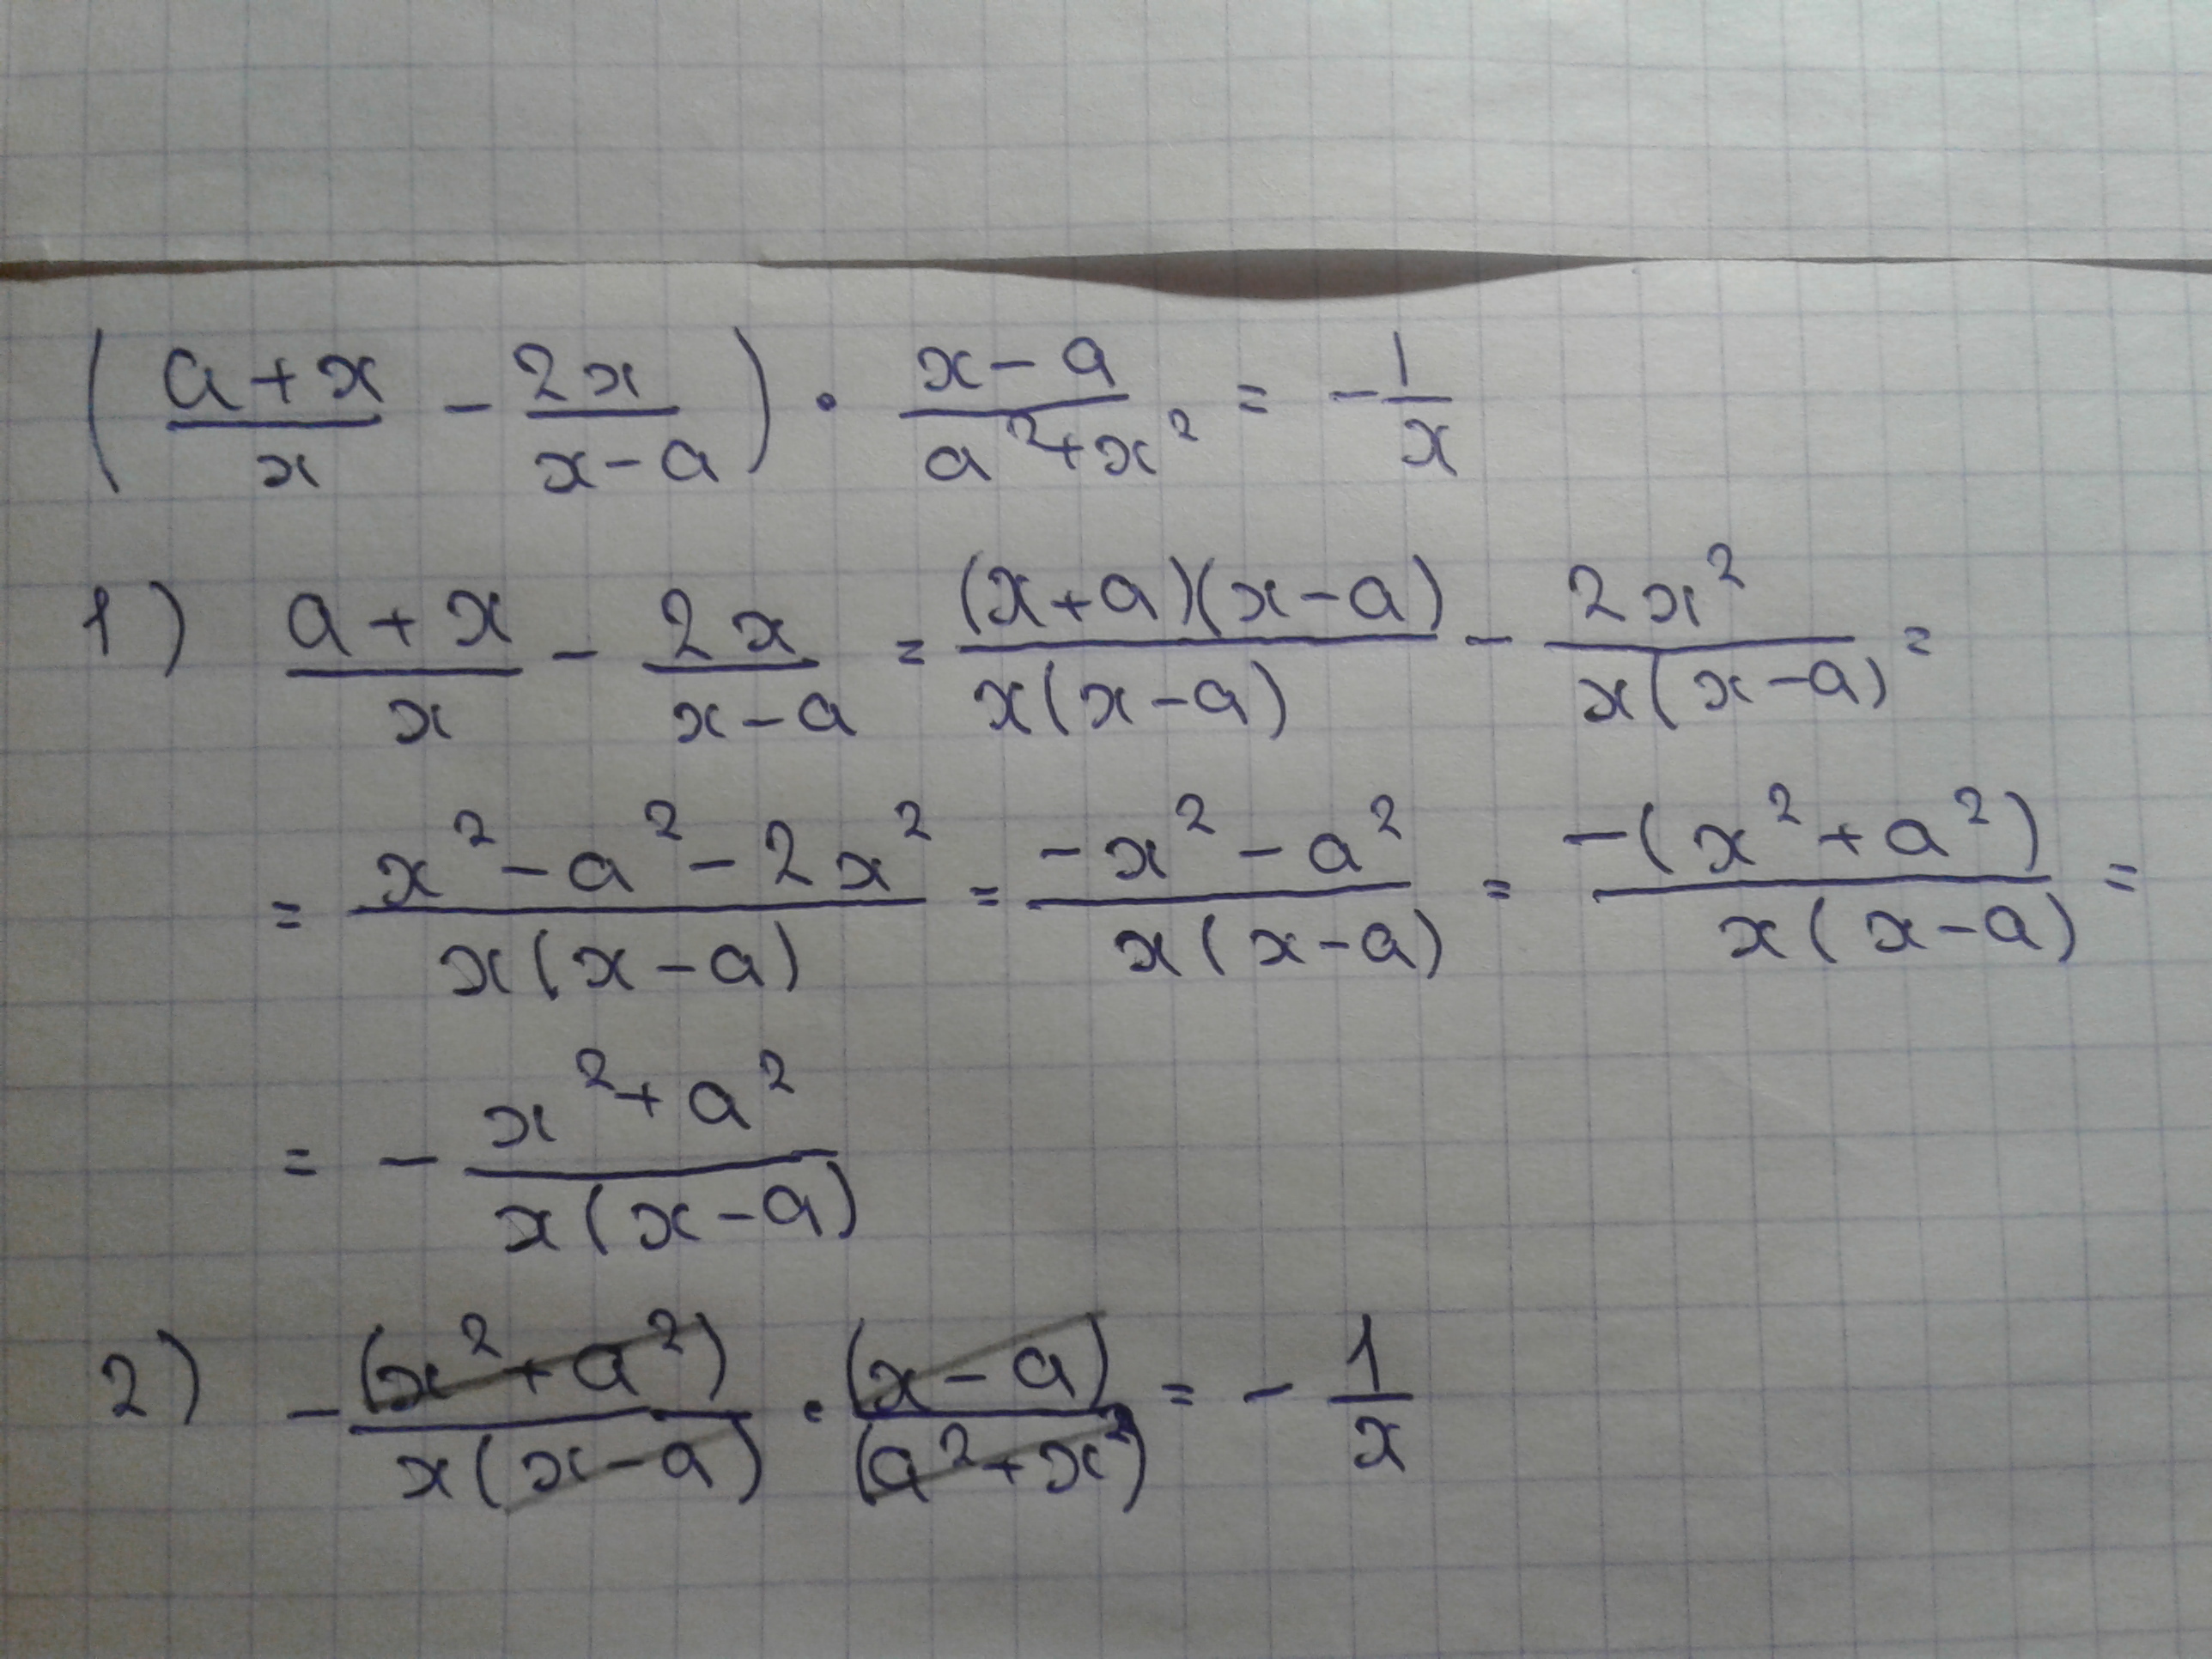 ( (a+x)/x - 2x/(x-a) ) · (x-a)/(a²+x²) = -1/x
1) (a+x)/x - 2x/(x-a) = (x+a)(x-a)/x(x-a) - 2x²/x(x-a) =
= (x²-a²-2x²)/x(x-a) = (-x²-a²)/x(x-a) = -(x²+a²)/x(x-a) =
= - (x²+a²)/x(x-a)
2) - (x²+a²)/x(x-a) · (x-a)/(a²+x²) = - 1/x